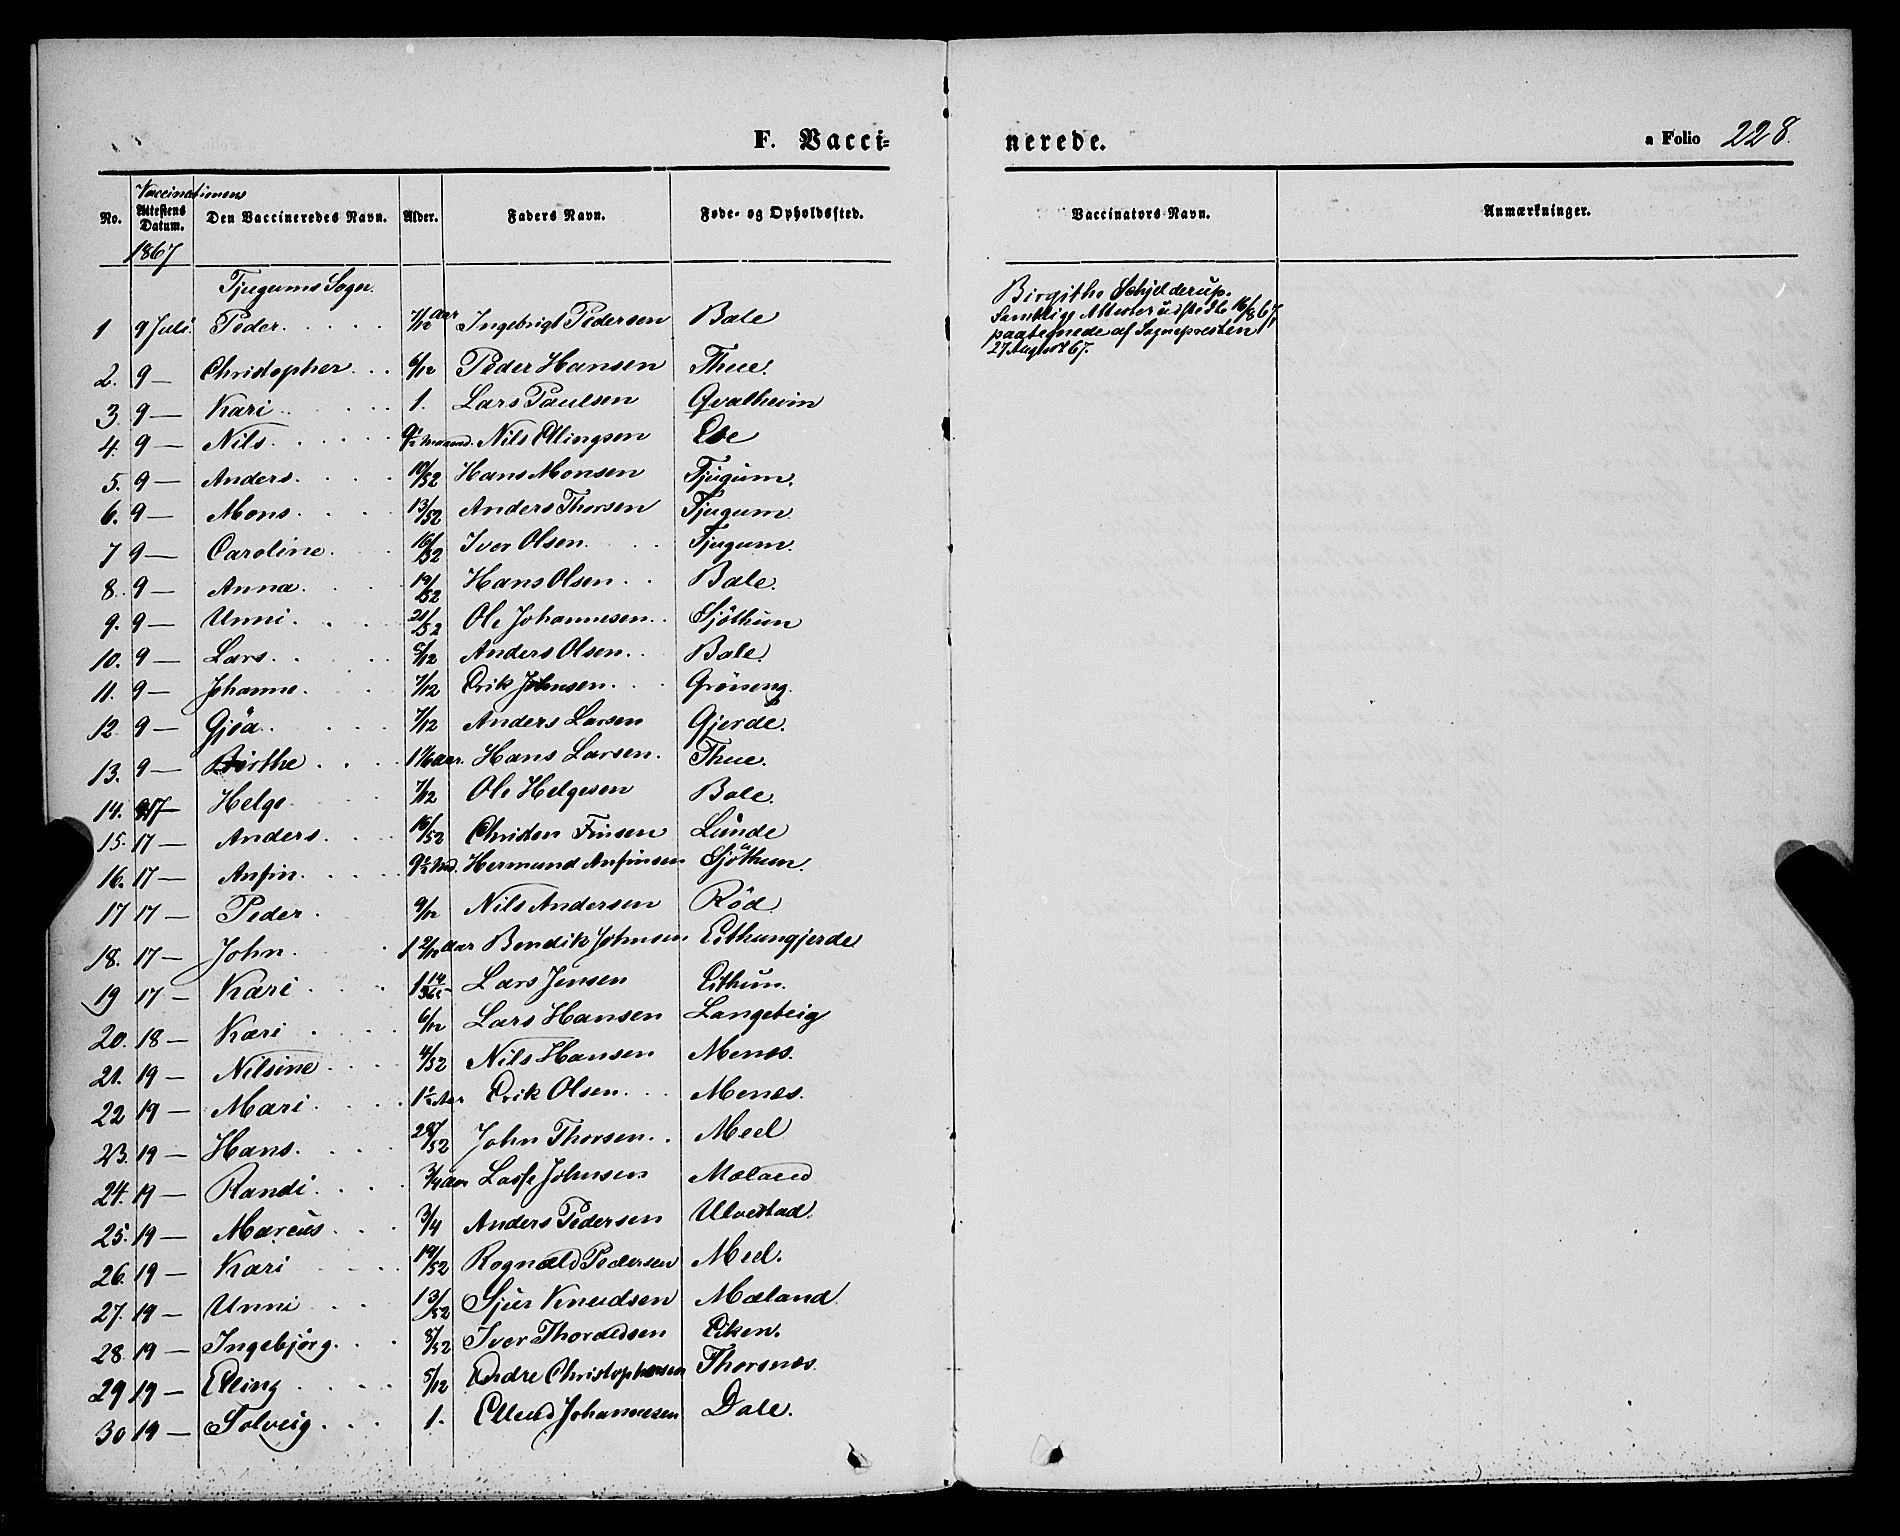 F. Vacci-
nerede.
a Folio 228.
Vaccinationens
No. Attestens Datum. Den Vaccineredes Navn. Alder. Faders Navn. Føde- og Opholdssted. Vaccinators Navn. Anmærkninger.
1867
Tjugums Sogn.
1 9 Juli Peder. 7/12 Aar Ingebrigt Pedersen Bale
Birgithe Schjelderup.
Samtlige Attester udstedte 16/8 67,
paategnede af Sognepresten
27 August 67.
2. 9 — Christopher 6/12 Peder Hansen Thue.
3. 9 — Kari 1. Lars Paulsen Qvalheim
4. 9 — Nils 9½ Maaned. Nils Ellingsen Ese
5. 9 — Anders 10/52 Hans Monsen Tjugum.
6. 9 — Mons 13/52 Anders Thorsen Tjugum.
7 9 — Caroline 16/52 Iver Olsen Tjugum.
8. 9 — Anna 19/52 Hans Olsen Bale.
9. 9 — Unni 21/52 Ole Johannesen Sjöthun
10. 9 — Lars 5/12 Anders Olsen Bale.
11. 9 — Johanne 7/12 Erik Johnsen Gröneng.
12. 9 — Gjöa 7/12 Anders Larsen Gjerde.
13. 9 — Birthe 1 1/6 Aar. Hans Larsen. Thue.
14. 17 — Helge 7/12 Ole Helgesen Bale.
15. 17 — Anders 16/52 Christen Finsen Lunde
16. 17 — Anfin 9½ Md. Hermund Anfinsen Sjöthun.
17 17 — Peder 9/12 Nils Andersen Röd.
18. 17 — John 1 2/12 Aar Bendik Johnsen Eithungjerde
19 17 — Kari 1 14/365 Lars Jensen Eithun.
20. 18 — Kari 6/12 Lars Hansen Langeteig
21. 19 — Nilsine 4/52 Nils Hansen Menes.
22 19 — Mari 1½ Aar Erik Olsen Menes.
23. 19 — Hans 28/52 John Thorsen Meel
24. 19 — Randi 3/4 Aar Lasse Johnsen Mæland
25. 19 — Marcus 3/4 Anders Pedersen Ulvestad.
26. 19 — Kari 19/52 Rognald Pedersen Meel.
27. 19 — Unni 13/52 Sjur Knudsen Mæland.
28. 19 — Ingebjörg 8/52 Iver Thordedsen Eken.
29 19 — Elling 5/12 Endre Christophersen Thorsnes.
30 19 — Solveig 1. Ellend Johannesen Dale.